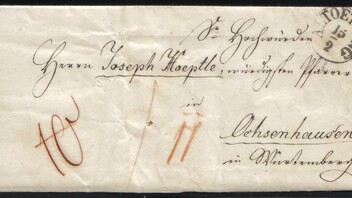 Sr Hochwürden
Herrn Joseph Hoeptle, würdigsten Pfarrer
in
Ochsenhausen
in Würtemberg
15
2